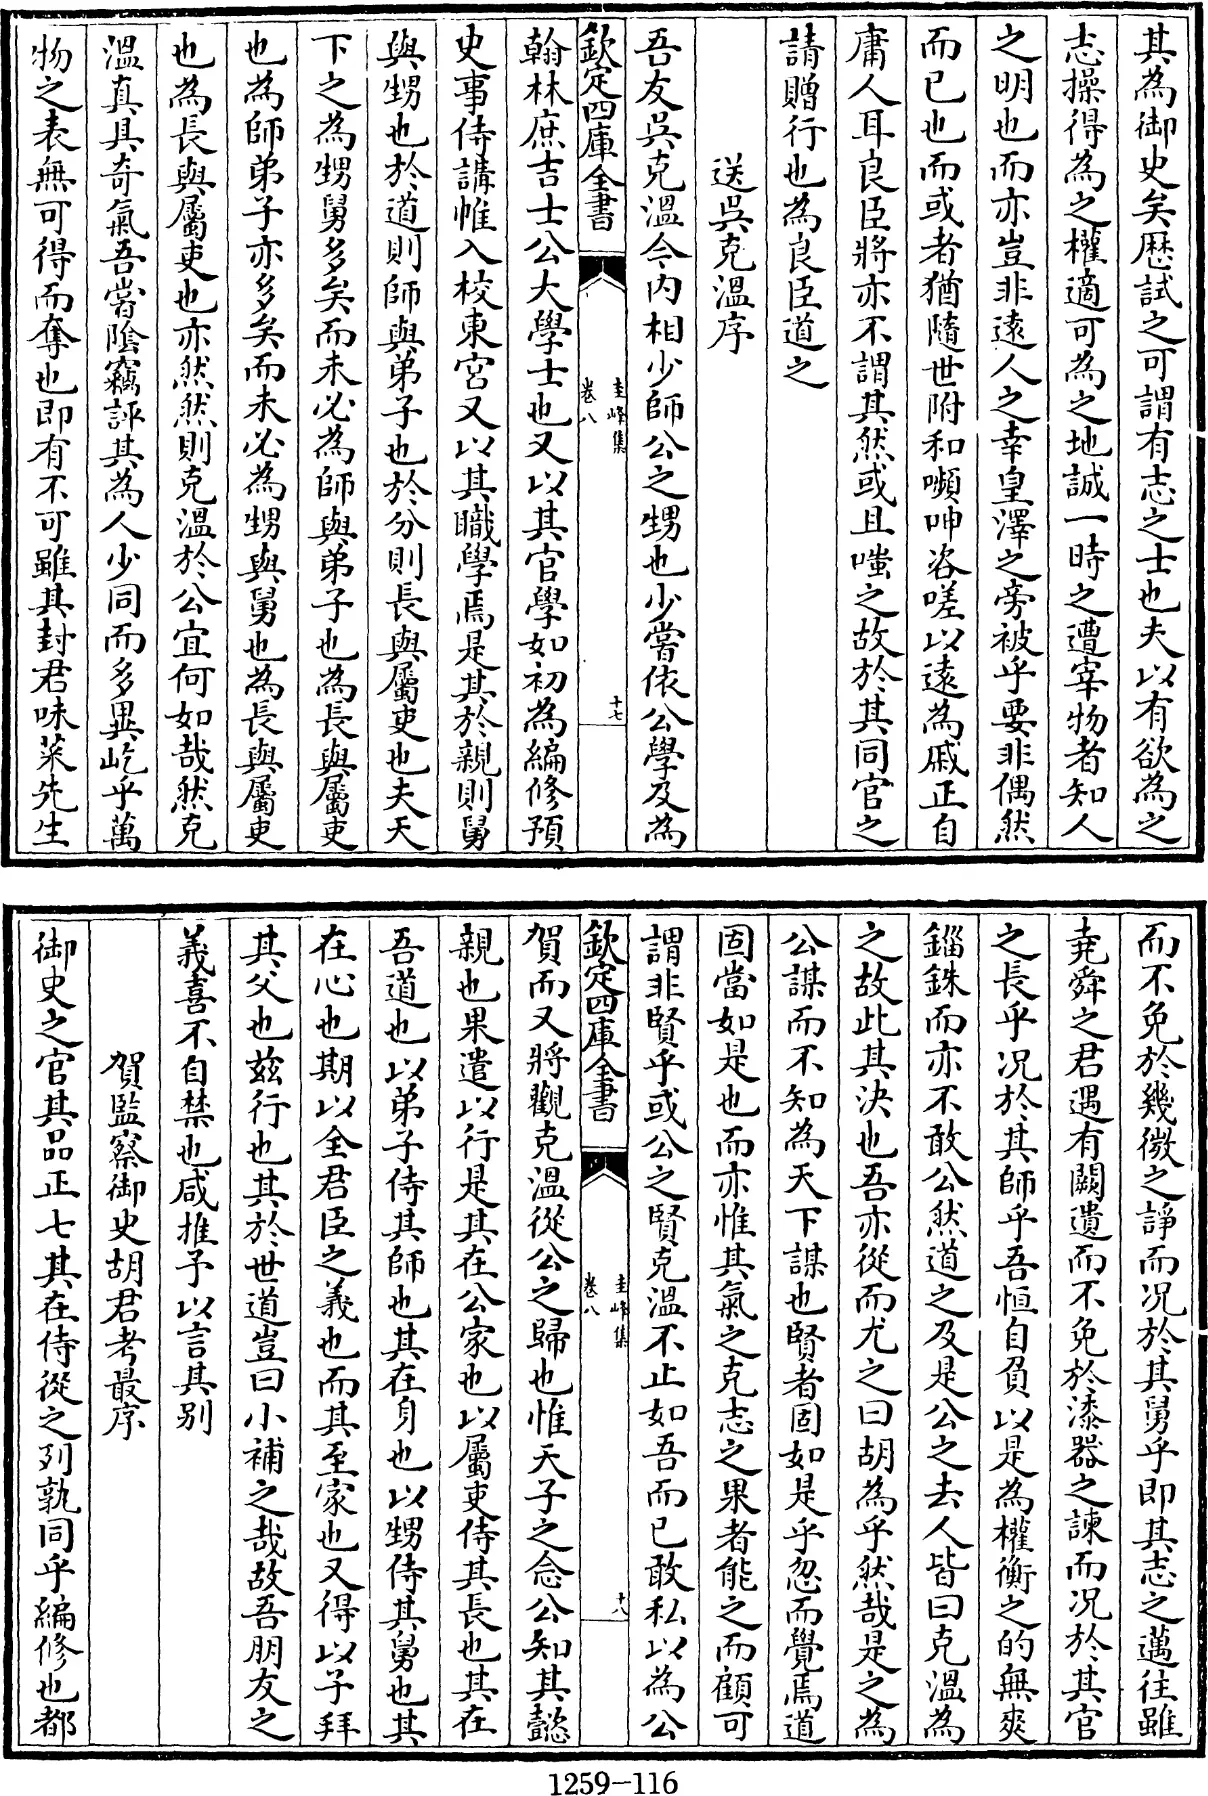 其為御史矣歴試之可謂有志之士也夫以有欲為之
志操得為之權適可為之地誠一時之遭宰物者知人
之明也而亦豈非遠人之幸皇澤之旁被乎要非偶然
而已也而或者猶隨世附和嚬呻咨嗟以遠為戚正自
庸人耳良臣將亦不謂其然或且嗤之故於其同官之
請贈行也為良臣道之
送吳克溫序
吾友吳克溫今内相少師公之甥也少嘗依公學及為
欽定四庫全書
圭峰集
卷八
十七
翰林庶吉士公大學士也又以其官學如初為編修預
史事侍講帷入校東宮又以其職學焉是其於親則舅
與甥也於道則師與弟子也於分則長與屬吏也夫天
下之為甥舅多矣而未必為師與弟子也為長與屬吏
也為師弟子亦多矣而未必為甥與舅也為長與屬吏
也為長與屬吏也亦然然則克溫於公宜何如哉然克
溫真具奇氣吾嘗陰竊評其為人少同而多異屹乎萬
物之表無可得而奪也即有不可雖其封君味菜先生
而不免於幾微之諍而况於其舅乎即其志之邁往雖
堯舜之君遇有闕遺而不免於漆器之諫而况於其官
之長乎况於其師乎吾恒自負以是為權衡之的無爽
錙銖而亦不敢公然道之及是公之去人皆曰克溫為
之故此其決也吾亦從而尤之曰胡為乎然哉是之為
公謀而不知為天下謀也賢者固如是乎忽而覺焉道
固當如是也而亦惟其氣之克志之果者能之而顧可
謂非賢乎或公之賢克溫不止如吾而已敢私以為公
欽定四庫全書
圭峰集
卷八
十八
賀而又將觀克溫從公之歸也惟天子之念公知其懿
親也果遣以行是其在公家也以屬吏侍其長也其在
吾道也以弟子侍其師也其在身也以甥侍其舅也其
在心也期以全君臣之義也而其至家也又得以子拜
其父也兹行也其於世道豈曰小補之哉故吾朋友之
義喜不自禁也咸推予以言其别
賀監察御史胡君考最序
御史之官其品正七其在侍從之列孰同乎編修也都
1259-116